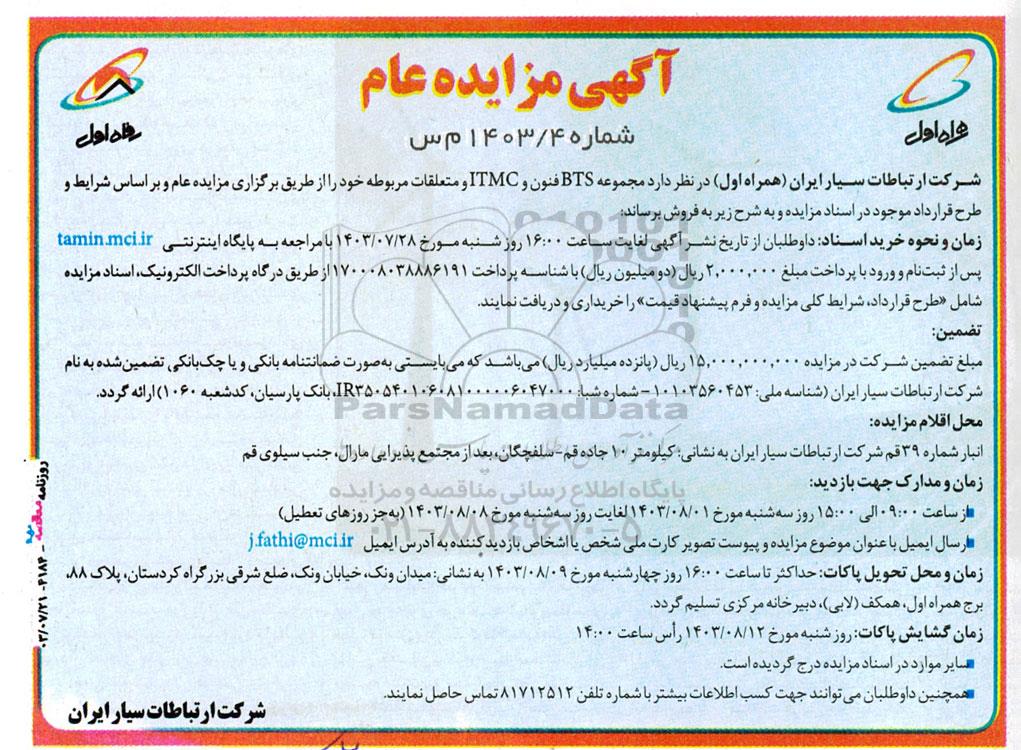 آگهی مزایده عام
شماره ۱۴۰۳/۴ م س
همراه اول
همراه اول
شرکت ارتباطات سیار ایران (همراه اول) در نظر دارد مجموعه BTS فنون و ITMC و متعلقات مربوطه خود را از طریق برگزاری مزایده عام و بر اساس شرایط و
طرح قرارداد موجود در اسناد مزایده و به شرح زیر به فروش برساند:
زمان و نحوه خرید اسناد: داوطلبان از تاریخ نشر آگهی لغایت ساعت ۱۶:۰۰ روز شنبه مورخ ۱۴۰۳/۰۷/۲۸ با مراجعه به پایگاه اینترنتی tamin.mci.ir
پس از ثبت‌نام و ورود با پرداخت مبلغ ۲,۰۰۰,۰۰۰ ریال (دو میلیون ریال) با شناسه پرداخت ۱۷۰۰۰۸۰۳۸۸۸۶۱۹۱ از طریق درگاه پرداخت الکترونیک، اسناد مزایده
شامل «طرح قرارداد، شرایط کلی مزایده و فرم پیشنهاد قیمت» را خریداری و دریافت نمایند.
تضمین:
مبلغ تضمین شرکت در مزایده ۱۵,۰۰۰,۰۰۰,۰۰۰ ریال (پانزده میلیارد ریال) می‌باشد که می‌بایستی به‌صورت ضمانتنامه بانکی و یا چک‌بانکی تضمین‌شده به نام
شرکت ارتباطات سیار ایران (شناسه ملی: ۱۰۱۰۳۵۶۰۴۵۳ - شماره شبا: IR۳۵۰۵۴۰۱۰۶۰۸۱۰۰۰۰۰۶۰۴۷۰۰۰، بانک پارسیان، کدشعبه ۱۰۶۰) ارائه گردد.
محل اقلام مزایده:
انبار شماره ۳۹ قم شرکت ارتباطات سیار ایران به نشانی: کیلومتر ۱۰ جاده قم-سلفچگان، بعد از مجتمع پذیرایی مارال، جنب سیلوی قم
زمان و مدارک جهت بازدید:
از ساعت ۰۹:۰۰ الی ۱۵:۰۰ روز سه‌شنبه مورخ ۱۴۰۳/۰۸/۰۱ لغایت روز سه‌شنبه مورخ ۱۴۰۳/۰۸/۰۸ (به‌جز روزهای تعطیل)
ارسال ایمیل با عنوان موضوع مزایده و پیوست تصویر کارت ملی شخص یا اشخاص بازدیدکننده به آدرس ایمیل j.fathi@mci.ir
زمان و محل تحویل پاکات: حداکثر تا ساعت ۱۶:۰۰ روز چهارشنبه مورخ ۱۴۰۳/۰۸/۰۹ به نشانی: میدان ونک، خیابان ونک، ضلع شرقی بزرگراه کردستان، پلاک ۸۸،
برج همراه اول، همکف (لابی)، دبیرخانه مرکزی تسلیم گردد.
زمان گشایش پاکات: روز شنبه مورخ ۱۴۰۳/۰۸/۱۲ رأس ساعت ۱۴:۰۰
سایر موارد در اسناد مزایده درج گردیده است.
همچنین داوطلبان می‌توانند جهت کسب اطلاعات بیشتر با شماره تلفن ۸۱۷۱۲۵۱۲ تماس حاصل نمایند.
شرکت ارتباطات سیار ایران
روزنامه مناقصه مزایده - ۴۱۸۴ - ۰۳/۰۷/۲۱
ParsNamadData
پایگاه اطلاع رسانی مناقصه و مزایده
۰۲۱-۸۸۳۴۹۶۷۰-۵